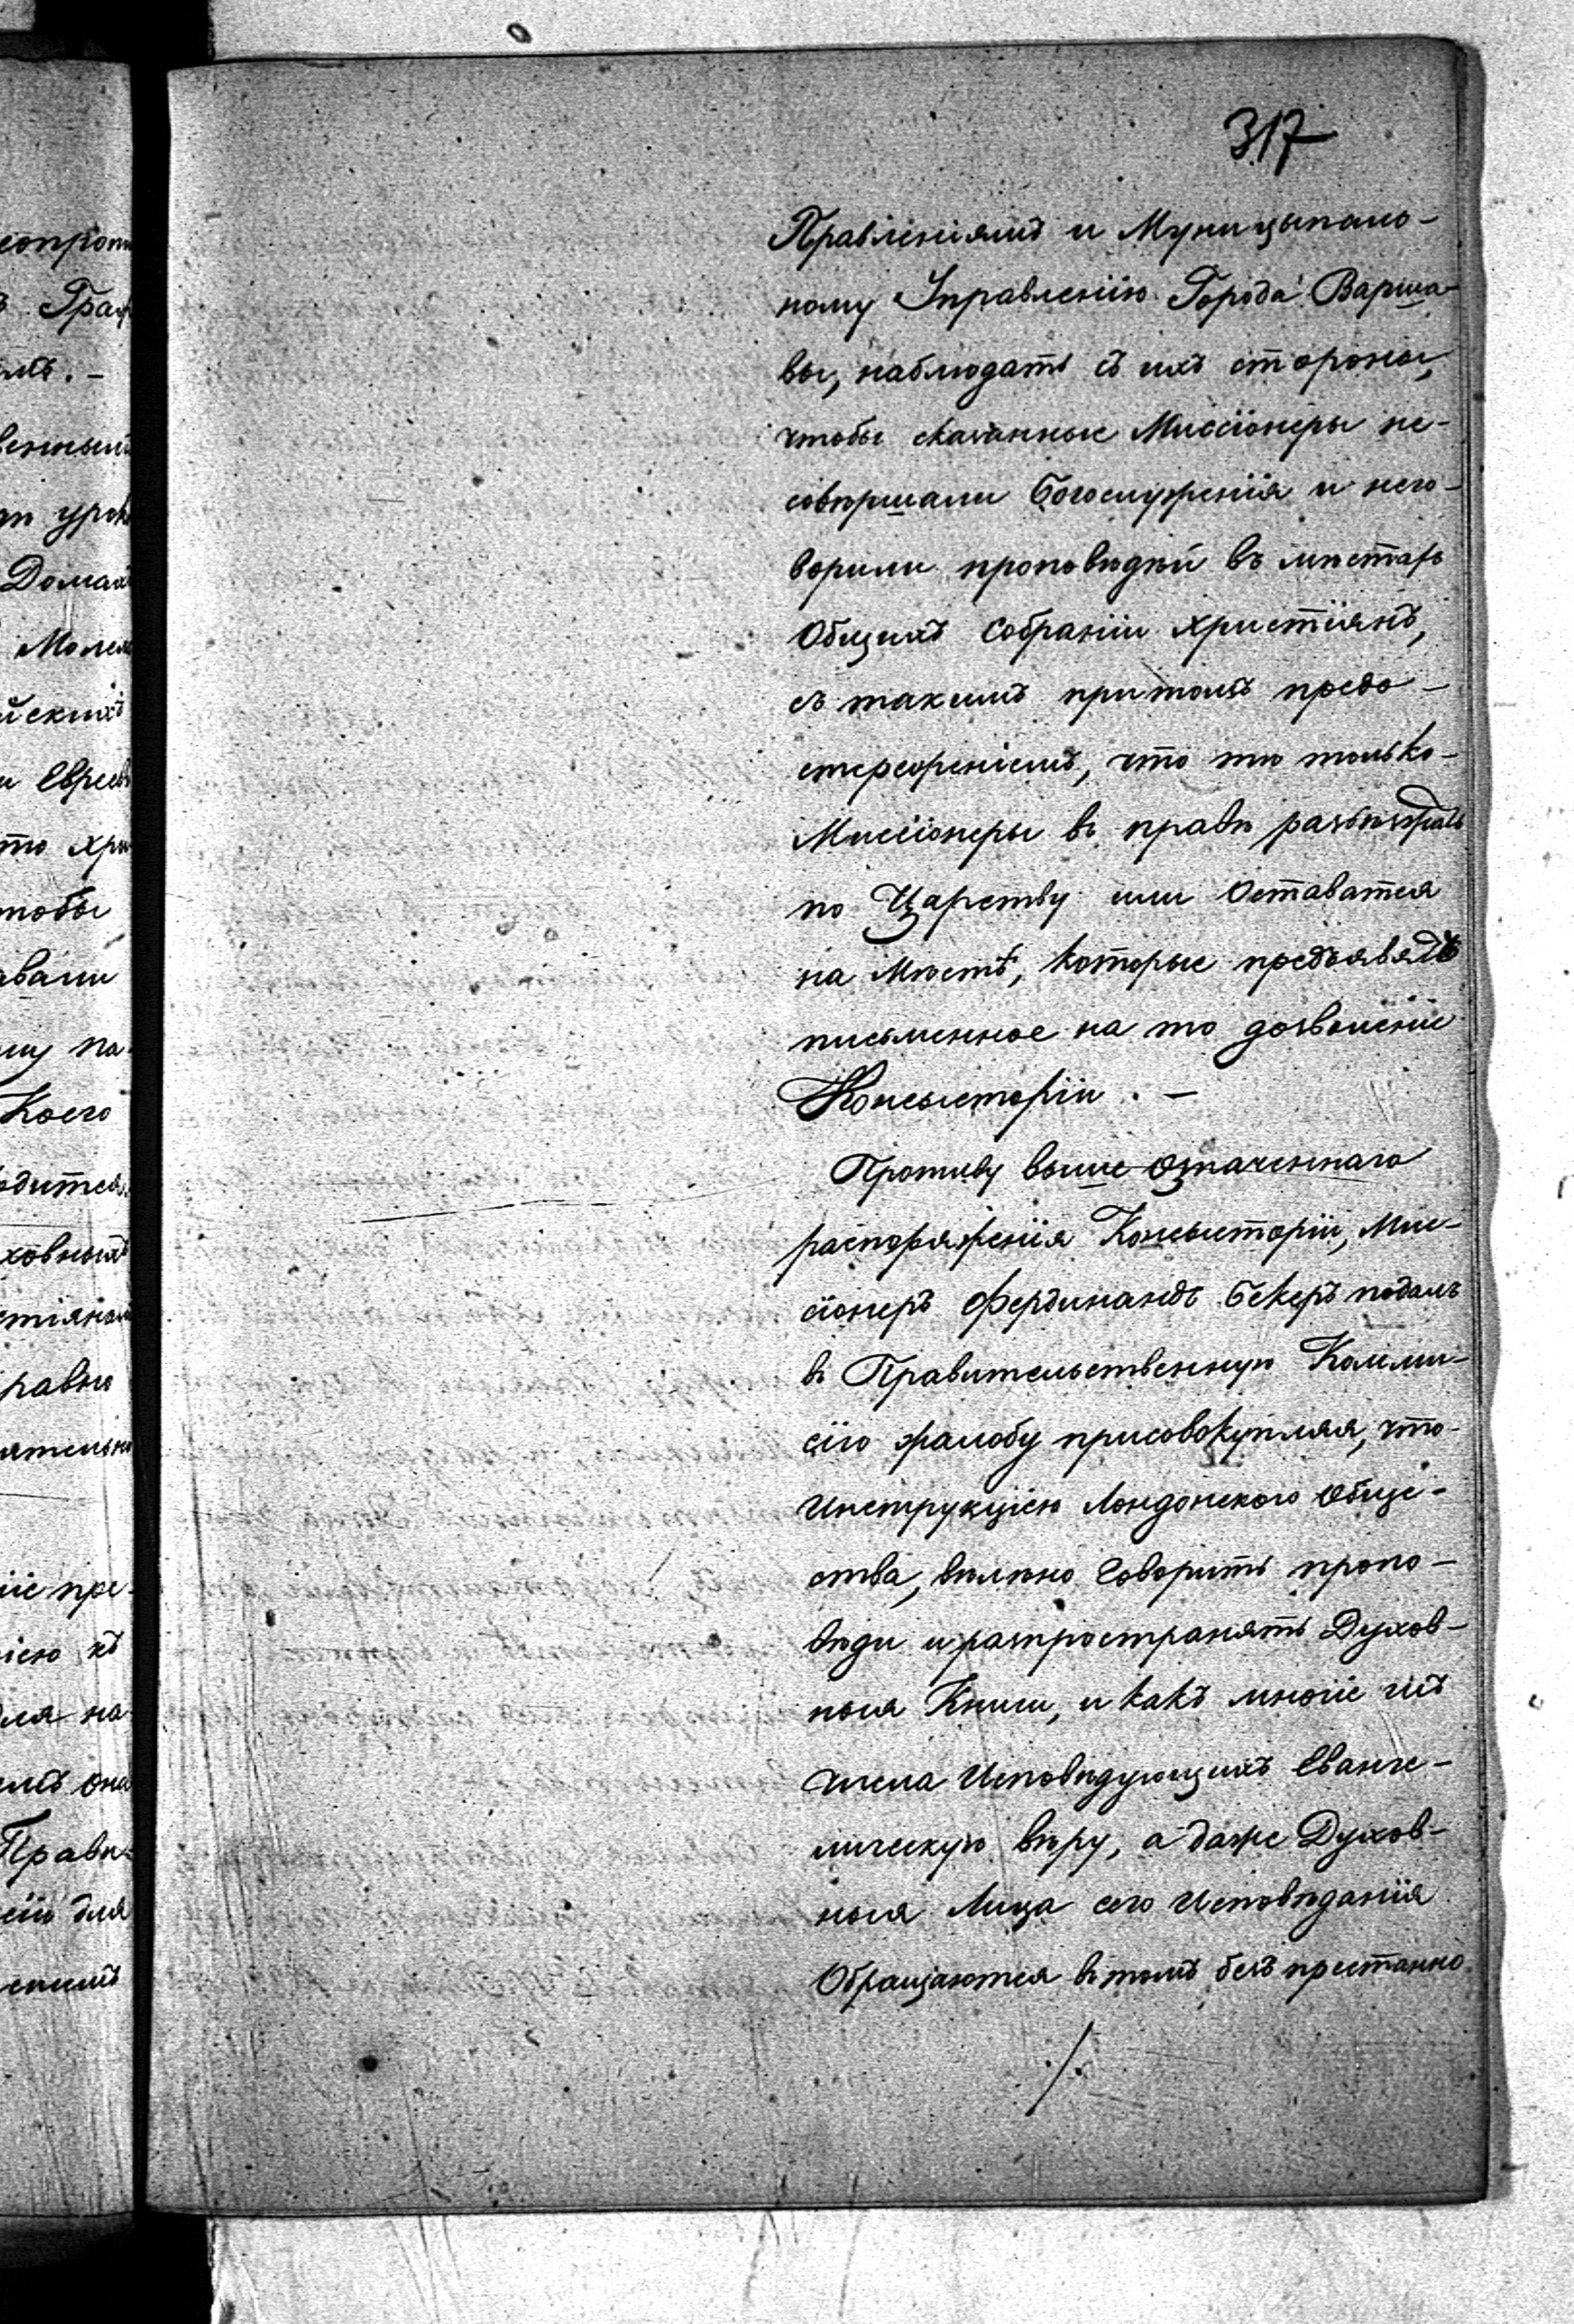 317
Правленіямъ и Муницыпаль-
ному Управленію Города Варша-
вы, наблюдать съ ихъ стороны,
чтобы сказанные Миссіонеры не-
совѣршали Богослуженія и него-
ворили проповѣдѣй въ мѣстахъ
Общихъ Собраніи христіянъ,
съ такимъ притомъ предо-
стереженіемъ, что тѣ только-
Миссіонеры въ правѣ разъѣзжать
по Царству или Оставатся
на Мѣстѣ, которые предъявядъ
письменное на то дозволеніе
Консысторіи. —
Противу выше означеннаго
распоряженія Консысторіи, Мис-
сіонеръ Фердинандъ Бекеръ подалъ
въ Правительственную Комми-
сію жалобу присовокупляя, что-
Инструкціею Лондонского Обще-
ства, вѣлѣно Говорить пропо-
вѣди и разпространять Духов-
ныя Книги, и какъ многіе изъ
числа Исповѣдующихъ Еванге-
лическую вѣру, а даже Духов-
ныя Лица сего Исповѣданія
Обращаются въ томъ безъ престанно
./.
Граф
венным
урок
Домахъ
Молел
йскихъ
и Евреевъ
то хри
чтобы
авали
му по
Коего
одится
ховныхъ
стіянам
равно
ятельно
іе пре-
іею къ
для на
имъ она
Правле
сію для
скимъ